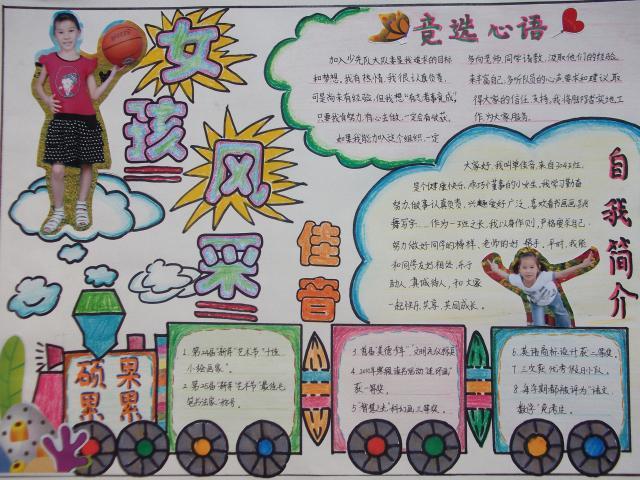 女孩风采
佳音
竞选心语
加入少先队大队委是我追求的目标
和梦想。我有热情,我很认真负责,
可是尚未有经验,但我想"有志者事竟成",
只要我有努力,有心去做,一定会有收获。
如果我能加入这个组织,一定
多向老师,同学请教,汲取他们的经验
来丰富自己,多听队员的心声要求和建议,取
得大家的信任,支持,我将脚踏实地工
作,为大家服务。
自我简介
大家好,我叫单佳音,来自
是个健康快乐,乖巧懂事的小女生,我学习勤奋
努力,做事认真负责,兴趣爱好广泛,喜欢看书画画跳
舞写字……作为一班之长,我以身作则,严格要求自己,
努力做好同学的榜样,老师的好帮手,平时,我能
和同学友好相处,乐于
助人,真诚待人,和大家
一起快乐共享,共同成长。
硕果累累
1.第24届"新年"艺术节"十佳
小绘画家"。
2.第25届"新年"艺术节"最佳毛
笔书法家"称号。
3.首届美德少年"文明礼仪标兵"
获一等奖。
5."智慧之光"科幻画三等奖。
6.英语商标设计获二等奖。
7.三次获优秀假日小队。
8.每学期都被评为"语文
数学"免考生。